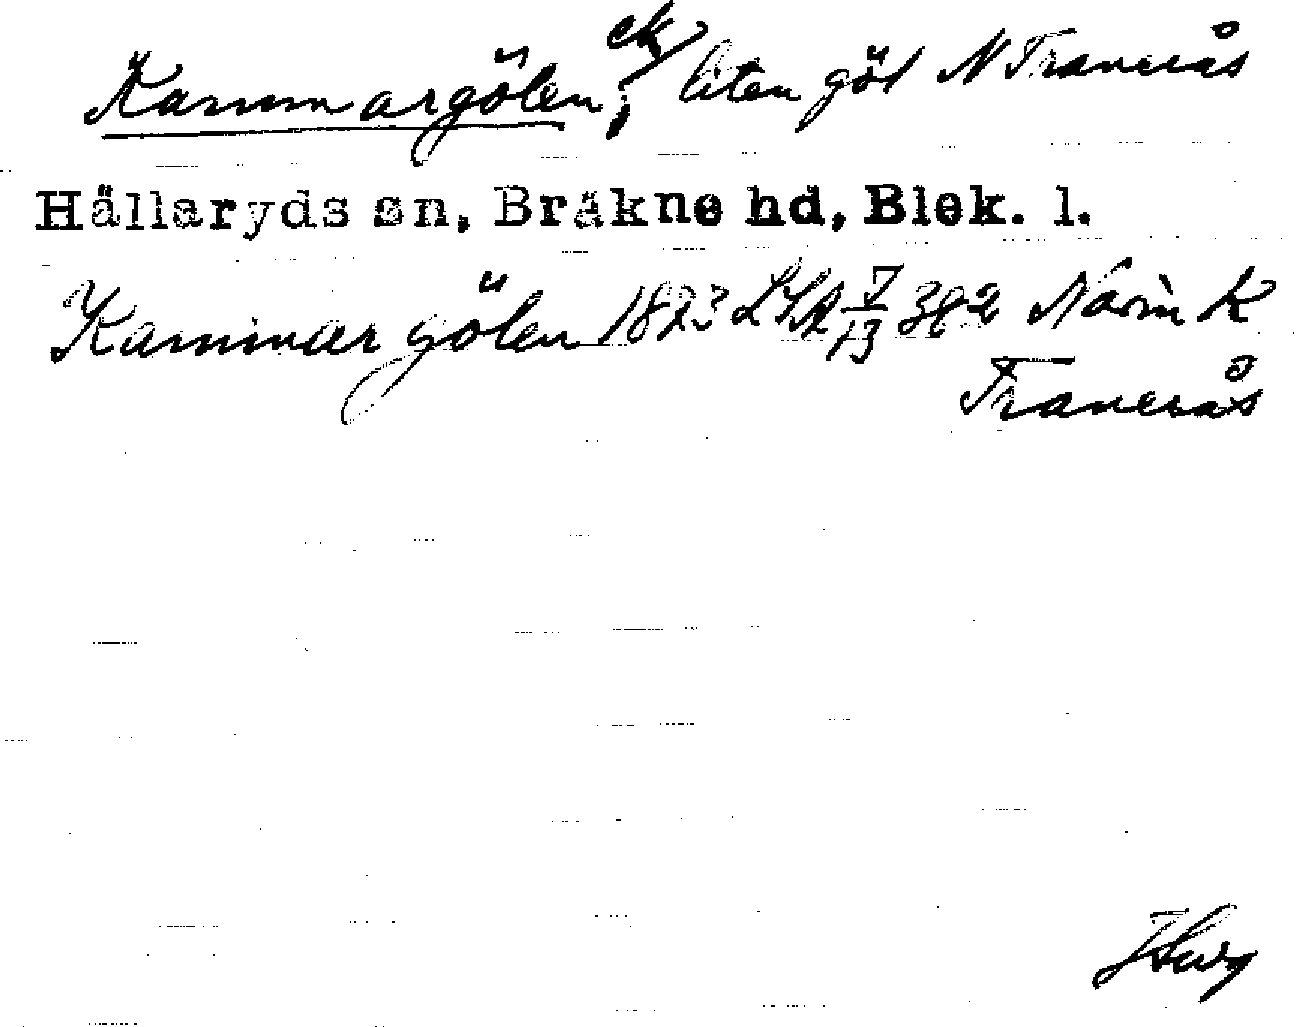 Kammargölen, ek/ liten göl N Tranerås
Hällaryds sn, Bräkne hd, Blek. l.
Kammar gölen 1823 LSA 7/13 382 K
Tranerås